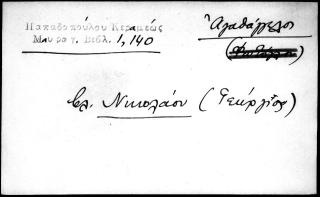 Παπαδοπούλου Κεραμέως
Μαυρογ. Βιβλ. 1,140
Ἀγαθάγγελος
βλ. Νικολάου (Γεώργιος)